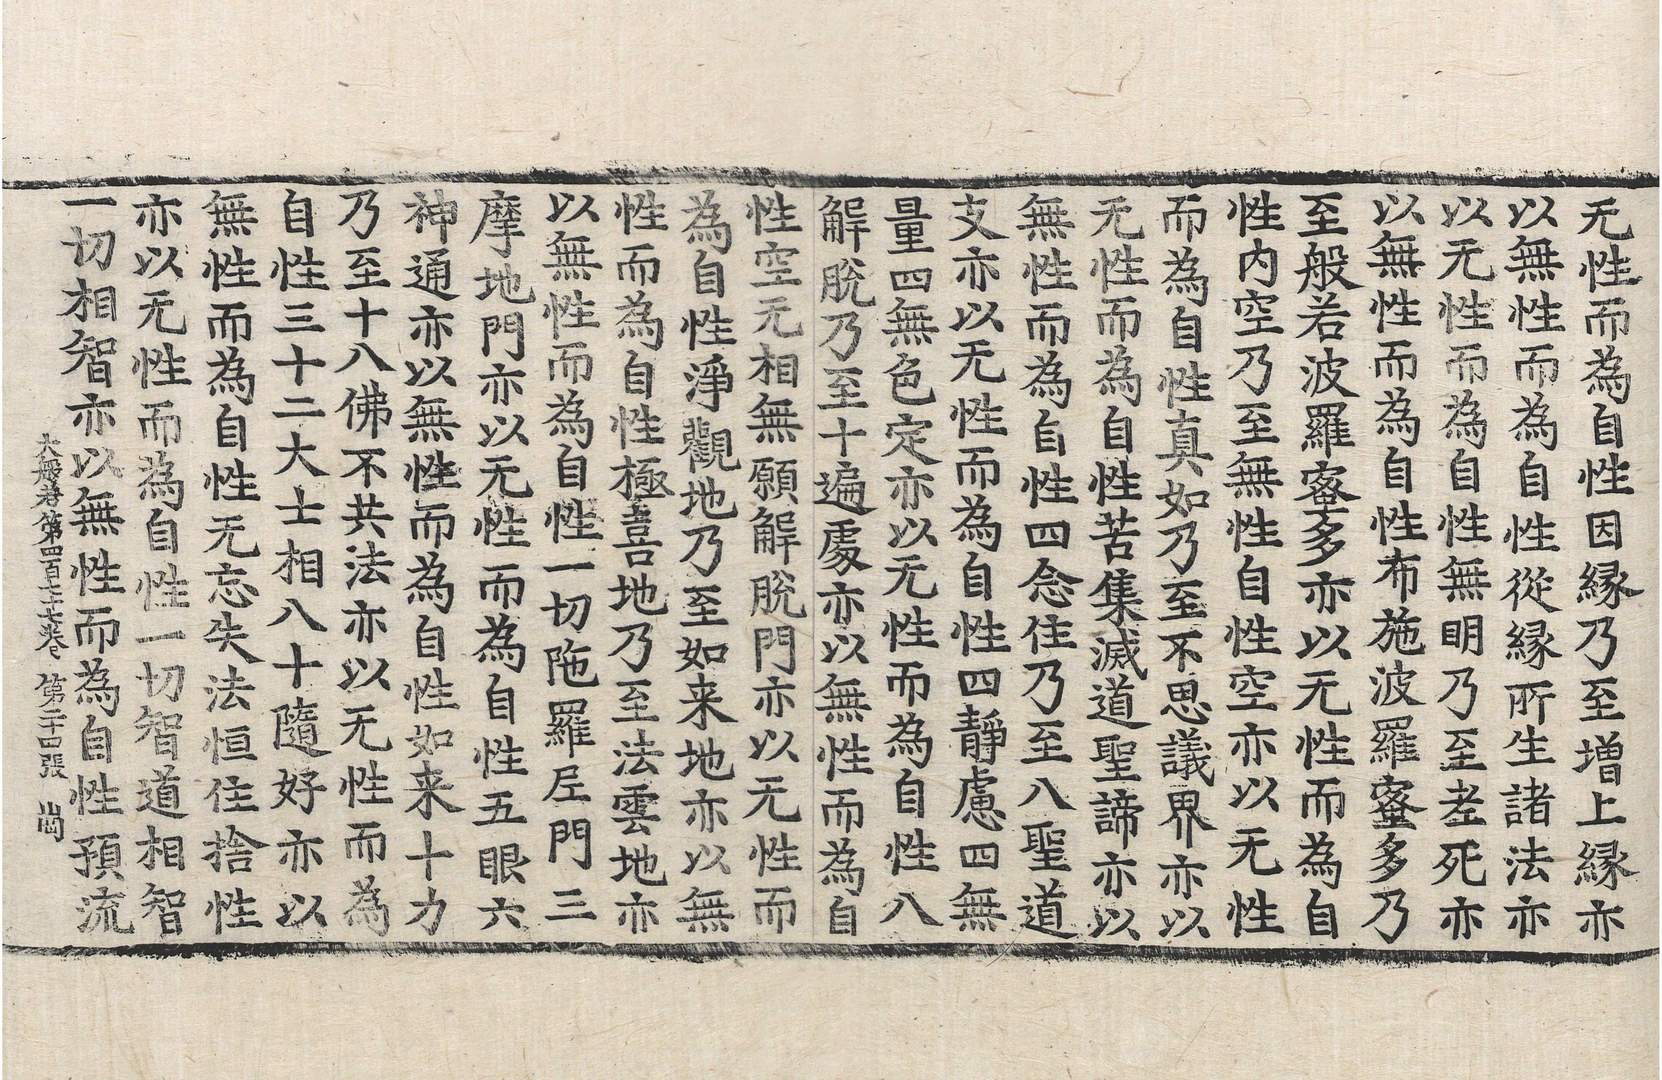 无性而為自性因縁乃至増上縁亦
以無性而為自性從縁所生諸法亦
以无性而為自性無明乃至老死亦
以無性而為自性布施波羅蜜多乃
至般若波羅蜜多亦以无性而為自
性内空乃至無性自性空亦以无性
而為自性真如乃至不思議界亦以
无性而為自性苦集滅道聖諦亦以
無性而為自性四念住乃至八聖道
支亦以无性而為自性四靜慮四無
量四無色定亦以无性而為自性八
解脫乃至十遍處亦以無性而為自
性空无相無願解脫門亦以无性而
為自性淨觀地乃至如来地亦以無
性而為自性極喜地乃至法雲地亦
以無性而為自性一切陁羅尼門三
摩地門亦以无性而為自性五眼六
神通亦以無性而為自性如来十力
乃至十八佛不共法亦以无性而為
自性三十二大士相八十隨好亦以
無性而為自性无忘失法恒住捨性
亦以无性而為自性一切智道相智
一切相智亦以無性而為自性預流
大般若第四百七十七卷 第二十四張 崗